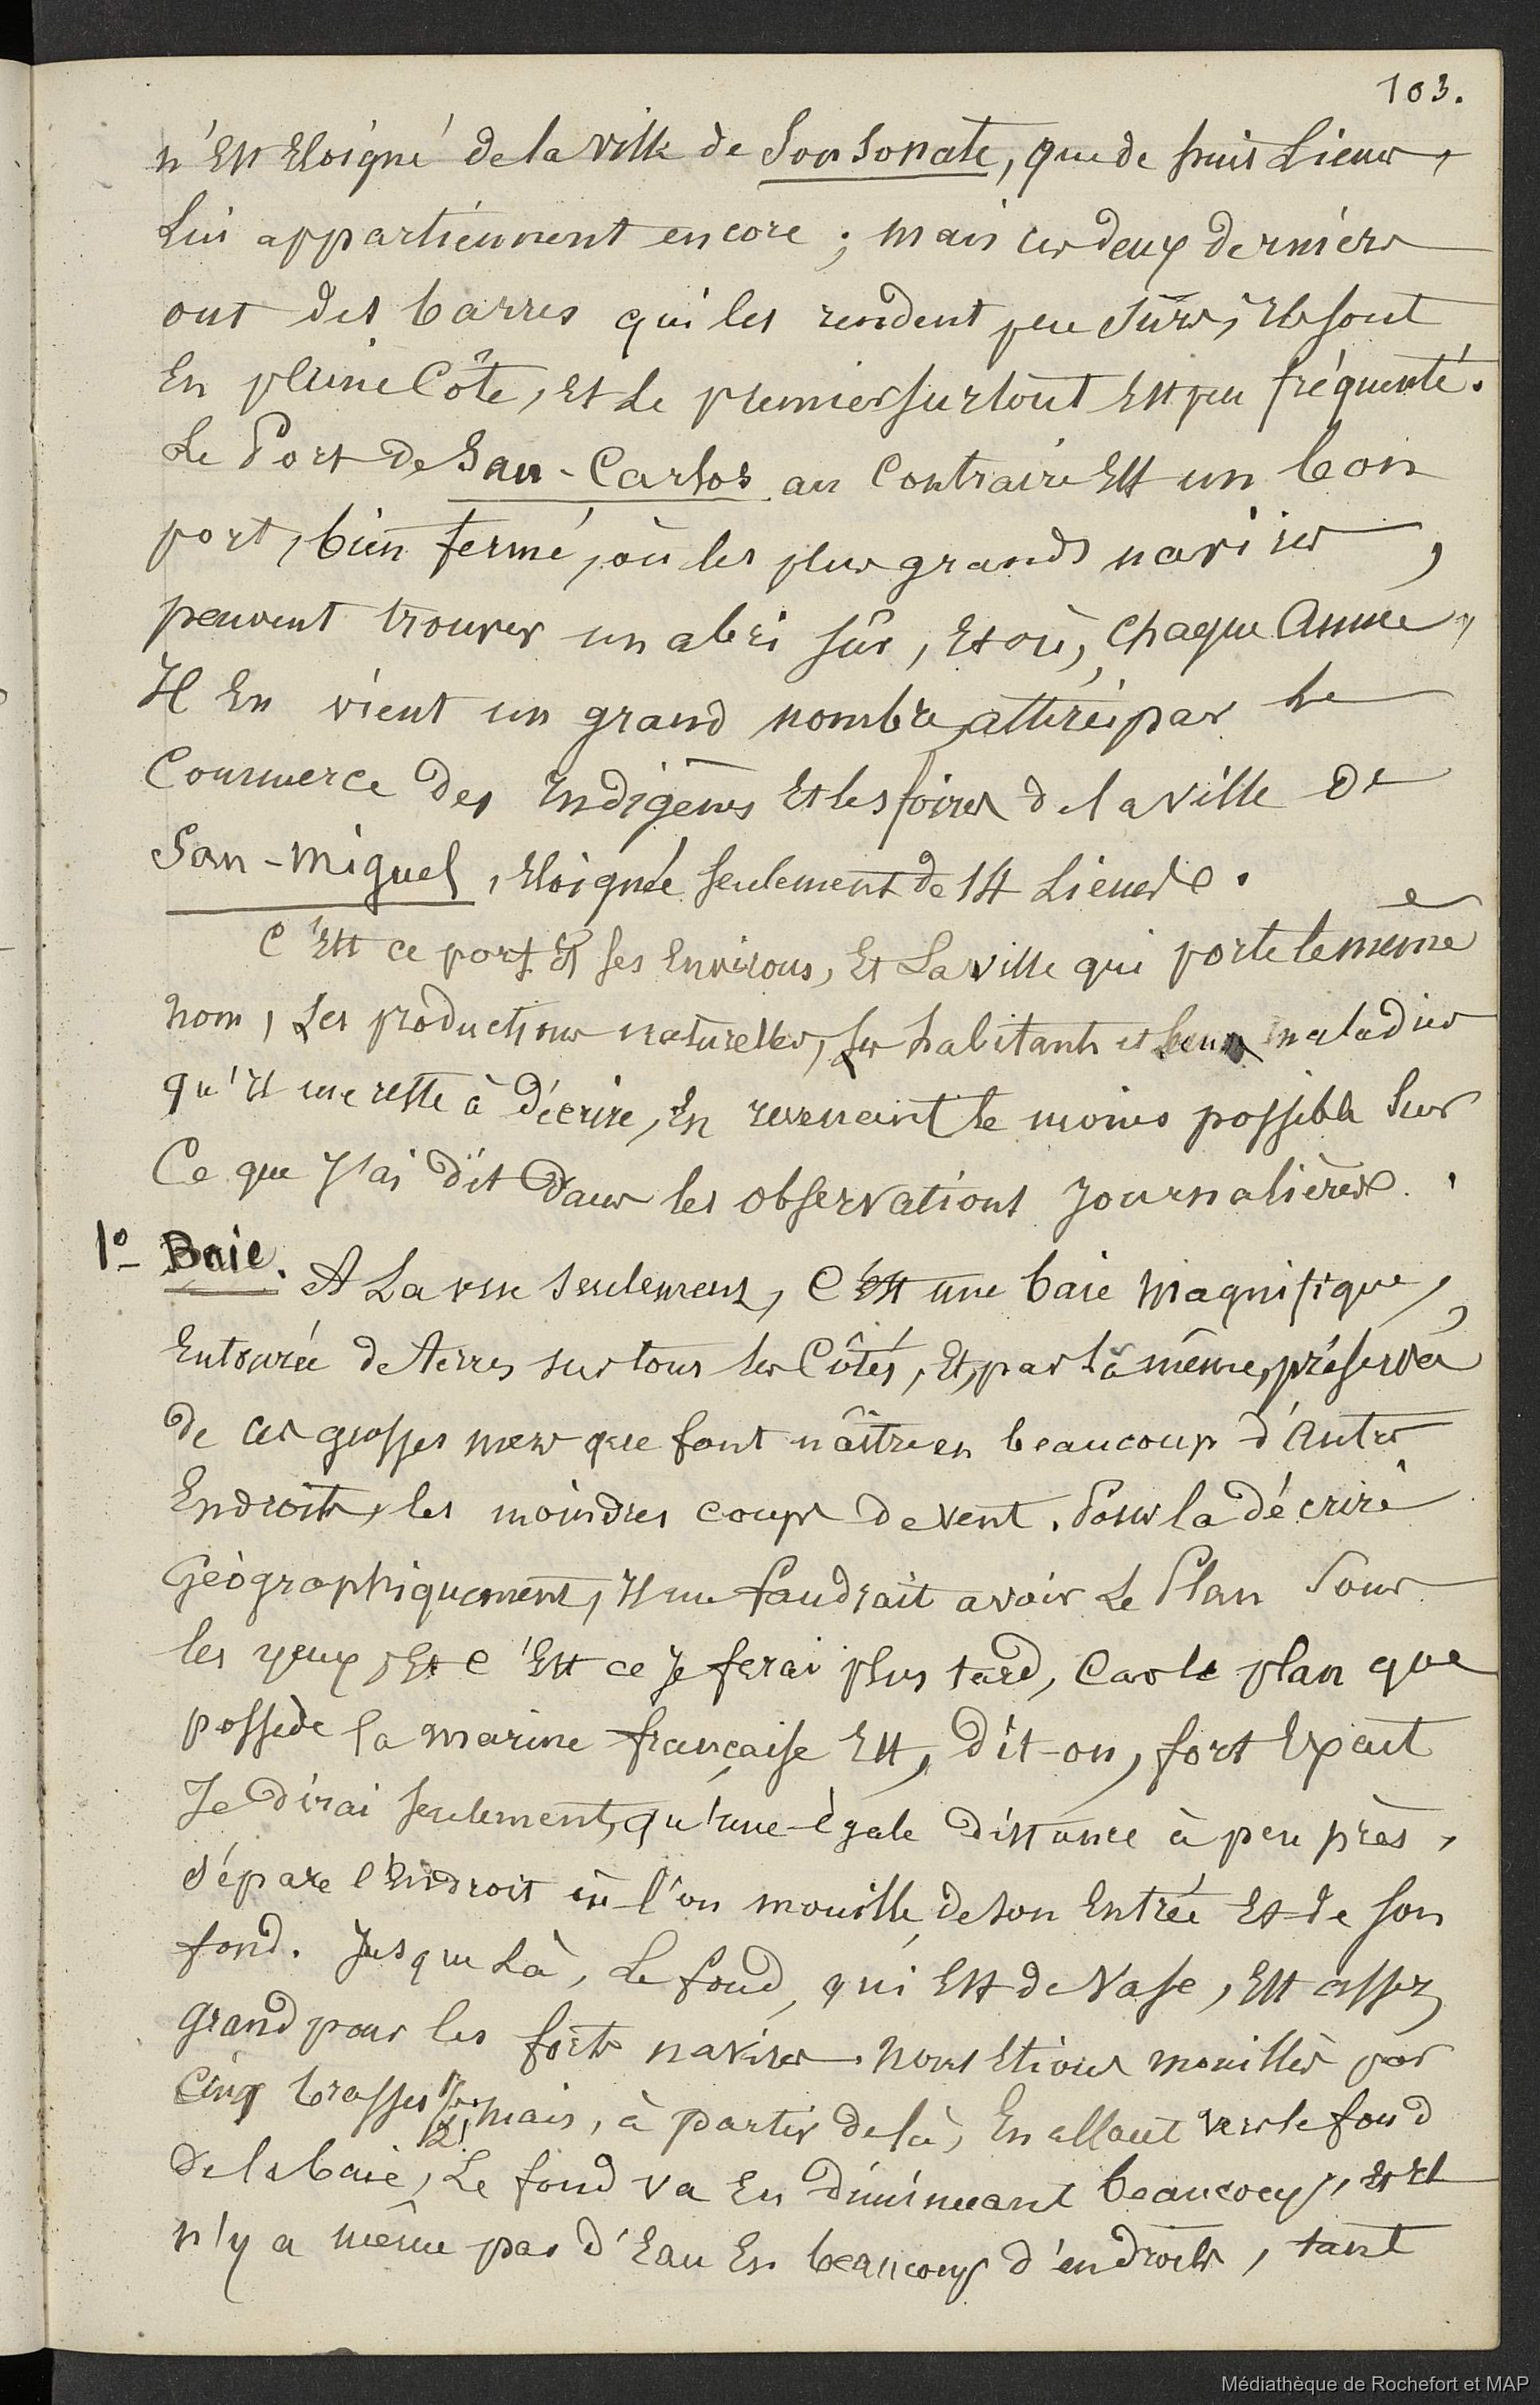 103.
n'Est Eloigné de la ville de Sonsonate, que de huit Lieues,
Lui appartiennent encore ; mais ces deux derniers
ont des barres qui les rendent peu Sûrs, Ils sont
En pleine Côte, et Le premier surtout Est peu fréquenté.
Le Port de San-Carlos au Contraire Est un bon
port, bien fermé, où les plus grands navires,
peuvent trouver un abri sûr, Et où, chaque Année,
Il En vient un grand nombre, attiré par le
Commerce des Indigènes Et les foires de la ville de
San-Miguel, Eloignée seulement de 14 Lieues.
C'Est ce port, Et ses Environs, Et La ville qui porte le même
nom, Les productions naturelles, les habitants et leurs maladies
qu'il me reste à décrire, En revenant le moins possible Sur
Ce que J'ai dit dans les observations Journalières.
1º Baie. A La vue Seulement, C'Est une baie Magnifique,
Entourée de terres sur tous les Côtés, Et, par là même, préservée
de ces grosses mers que font naître en beaucoup d'Autres
Endroits, les moindres coups de vent. Pour la décrire
Géographiquement, Il me faudrait avoir Le Plan Sous
les yeux, Et C'Est ce Je ferai plus tard, Car le plan que
possède la marine française Est, dit-on, fort Exact
Je dirai seulement, qu'une égale distance à peu près,
sépare l'Endroit où l'on mouille, de son Entrée Et de son
fond. Jusque Là, Le fond, qui Est de Vase, Est assez
grand pour les forts navires. Nous Etions mouillés par
Cinq brasses 1/2, mais, à partir de là, En allant vers le fond
de la baie, Le fond va En diminuant beaucoup, et Il
n'y a même pas d'Eau En beaucoup d'endroits, tant
Médiathèque de Rochefort et MAP